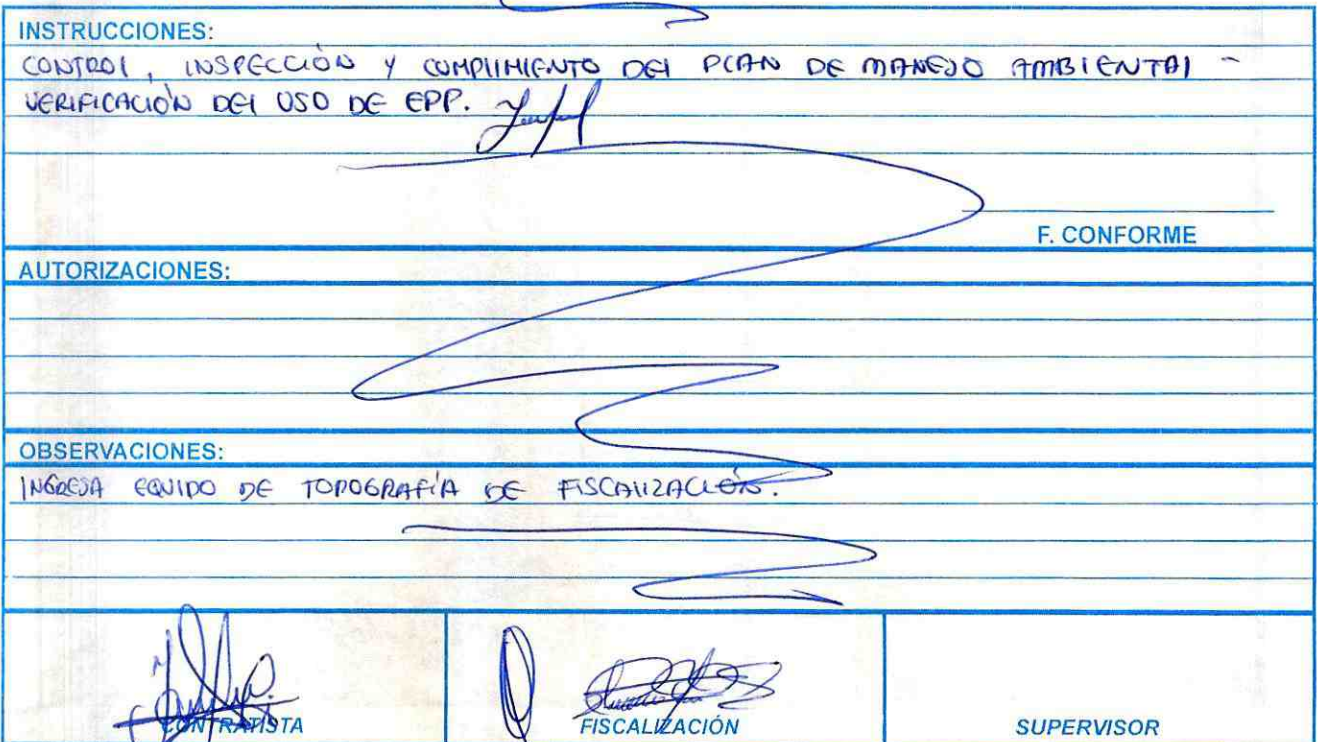 INSTRUCCIONES:
CONTROL, INSPECCIÓN Y CUMPLIMIENTO DEL PLAN DE MANEJO AMBIENTAL -
VERIFICACIÓN DEL USO DE EPP.
F. CONFORME
AUTORIZACIONES:
OBSERVACIONES:
INGRESA EQUIPO DE TOPOGRAFÍA DE FISCALIZACIÓN.
CONTRATISTA FISCALIZACIÓN SUPERVISOR